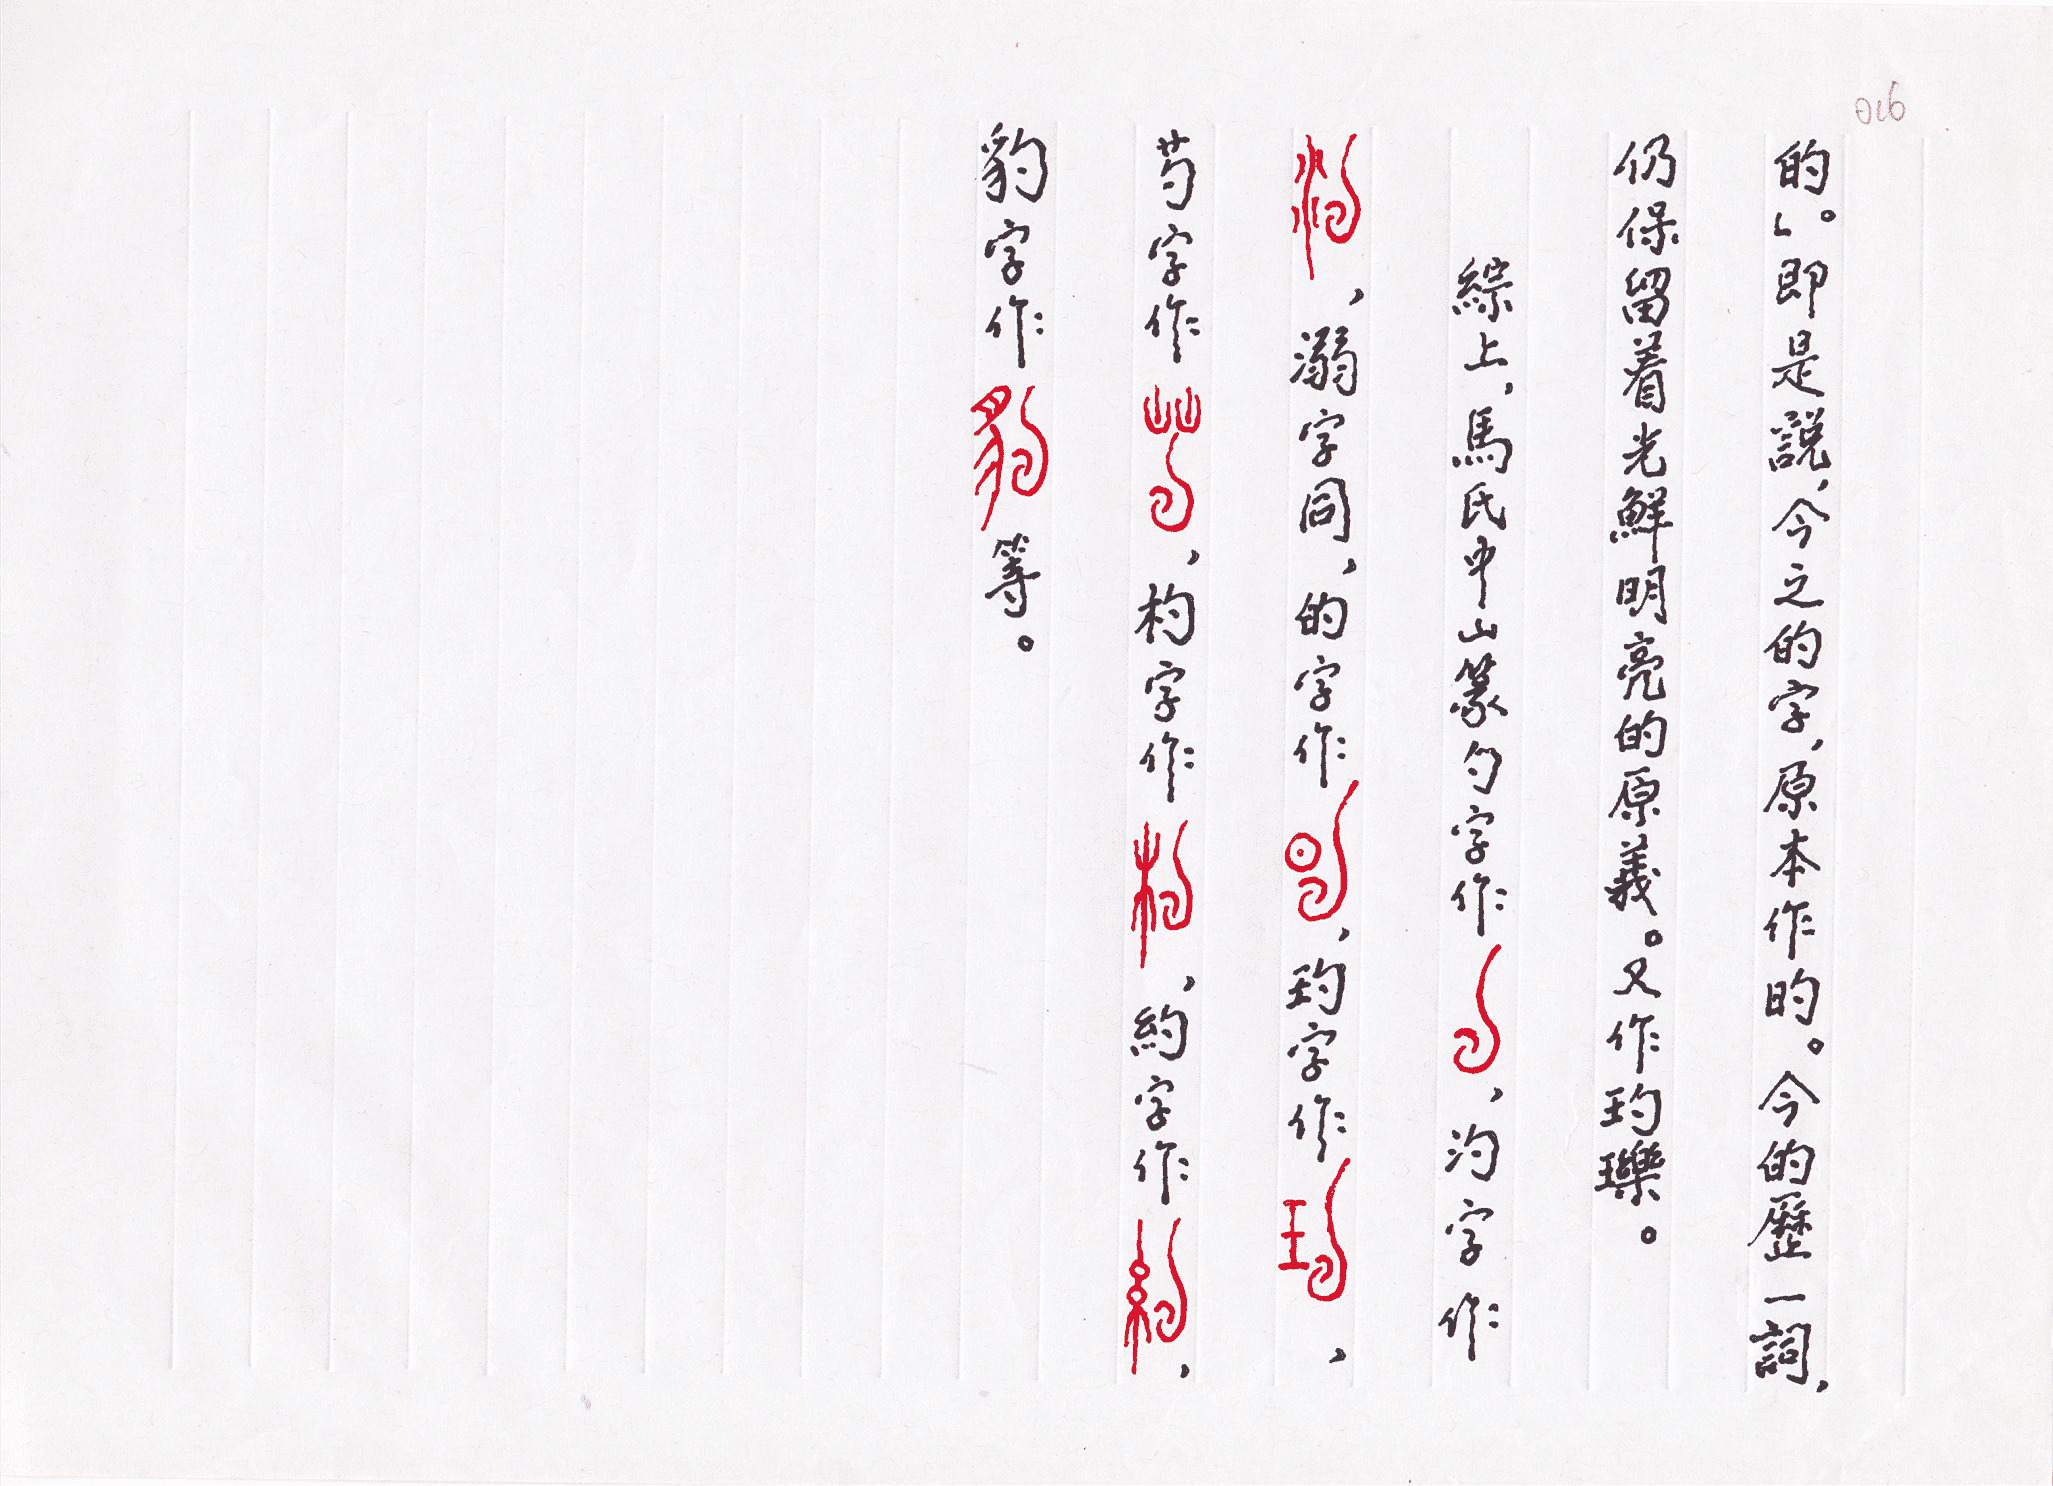 016
的。」即是説，今之的字，原本作旳。今的歷一詞，
仍保留着光鮮明亮的原義。又作玓瓅。
綜上，馬氏中山篆勺字作勺，汋字作
汋，溺字同，的字作旳，玓字作玓，
芍字作芍，杓字作杓，約字作約，
豹字作豹等。